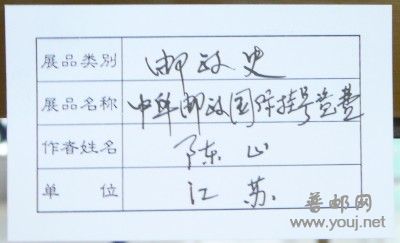 展品类别 邮政史
展品名称 中华邮政国际挂号资费
作者姓名 陈山
单 位 江苏
普邮网
www.youj.net